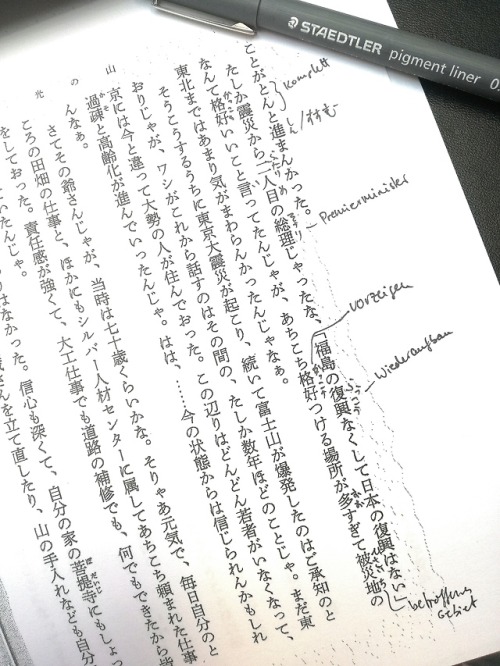 STAEDTLER pigment liner
光の山
ことがとんと進まんかった。
たしか震災から二人目の総理じゃったな、「福島の復興なくして日本の復興はない」
なんて格好いいこと言ってたんじゃが、あちこち格好つける場所が多すぎて被災地の
東北まではあまり気がまわらんかったんじゃなぁ。
そうこうするうちに東京大震災が起こり、続いて富士山が爆発したのはご承知のと
おりじゃが、ワシがこれから話すのはその間の、たしか数年ほどのことじゃ。まだ東
京には今と違って大勢の人が住んでおった。この辺りはどんどん若者がいなくなって、
過疎と高齢化が進んでいったんじゃ。はは、……今の状態からは信じられんかもしれ
んなぁ。
さてその爺さんじゃが、当時は七十歳くらいかな。そりゃあ元気で、毎日自分のと
ころの田畑の仕事と、ほかにもシルバー人材センターに属してあちこち頼まれた仕事
をしておった。責任感が強くて、大工仕事でも道路の補修でも、何でもできたから皆
ていたんじゃ。
りはなかった。信心も深くて、自分の家の菩提寺にもしょっ
さんを立て直したり、山の手入れなども自分
Komplett
Premierminister
vorzeigen
Wiederaufbau
betroffenes
Gebiet